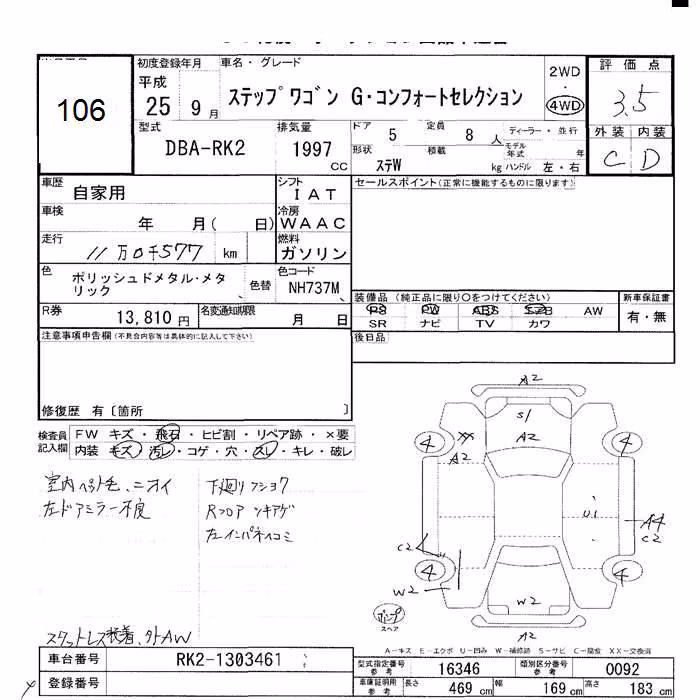 106
初度登録年月
平成
25 9月
車名・グレード
ステップワゴン G・コンフォートセレクション
2WD
・
4WD
評価点
3.5
外装 内装
C D
型式
DBA-RK2
排気量
1997
CC
ドア 5
定員 8 人
ディーラー・並行
形状 ステW
積載 kg
モデル年式 年
ハンドル 左・右
車歴 自家用
シフト IAT
セールスポイント(正常に機能するものに限ります)
車検 年 月( 日)
冷房 WAAC
走行 11万0千577 km
燃料 ガソリン
色 ポリッシュドメタル・メタリック
色替
色コード NH737M
装備品 (純正品に限り〇をつけてください)
新車保証書
PS PW ABS エアB AW
SR ナビ TV カワ
有・無
R券 13,810 円
名変通知期限 月 日
後日品
注意事項申告欄(不具合内容等は具体的に記入して下さい)
修復歴 有〔箇所 〕
検査員記入欄
FW キズ・飛石・ヒビ割・リペア跡・×要
内装 キズ・汚レ・コゲ・穴・スレ・キレ・破レ
室内ペット毛、ニオイ
左ドアミラー不良
下廻りフショク
Rフロアツキアゲ
左インパネヘコミ
スタットレス装着、外AW
A2
S/
A2
4
XX
A2
4
U1
A4
C2
C2
4
W2
W2
4
A2
スペア
A-キズ E-エクボ U-凹み W-補修跡 S-サビ C-腐食 XX-交換済
車台番号 RK2-1303461
型式指定番号 参考 16346
類別区分番号 参考 0092
登録番号
車庫証明用 参考 長さ 469 cm 幅 169 cm 高さ 183 cm